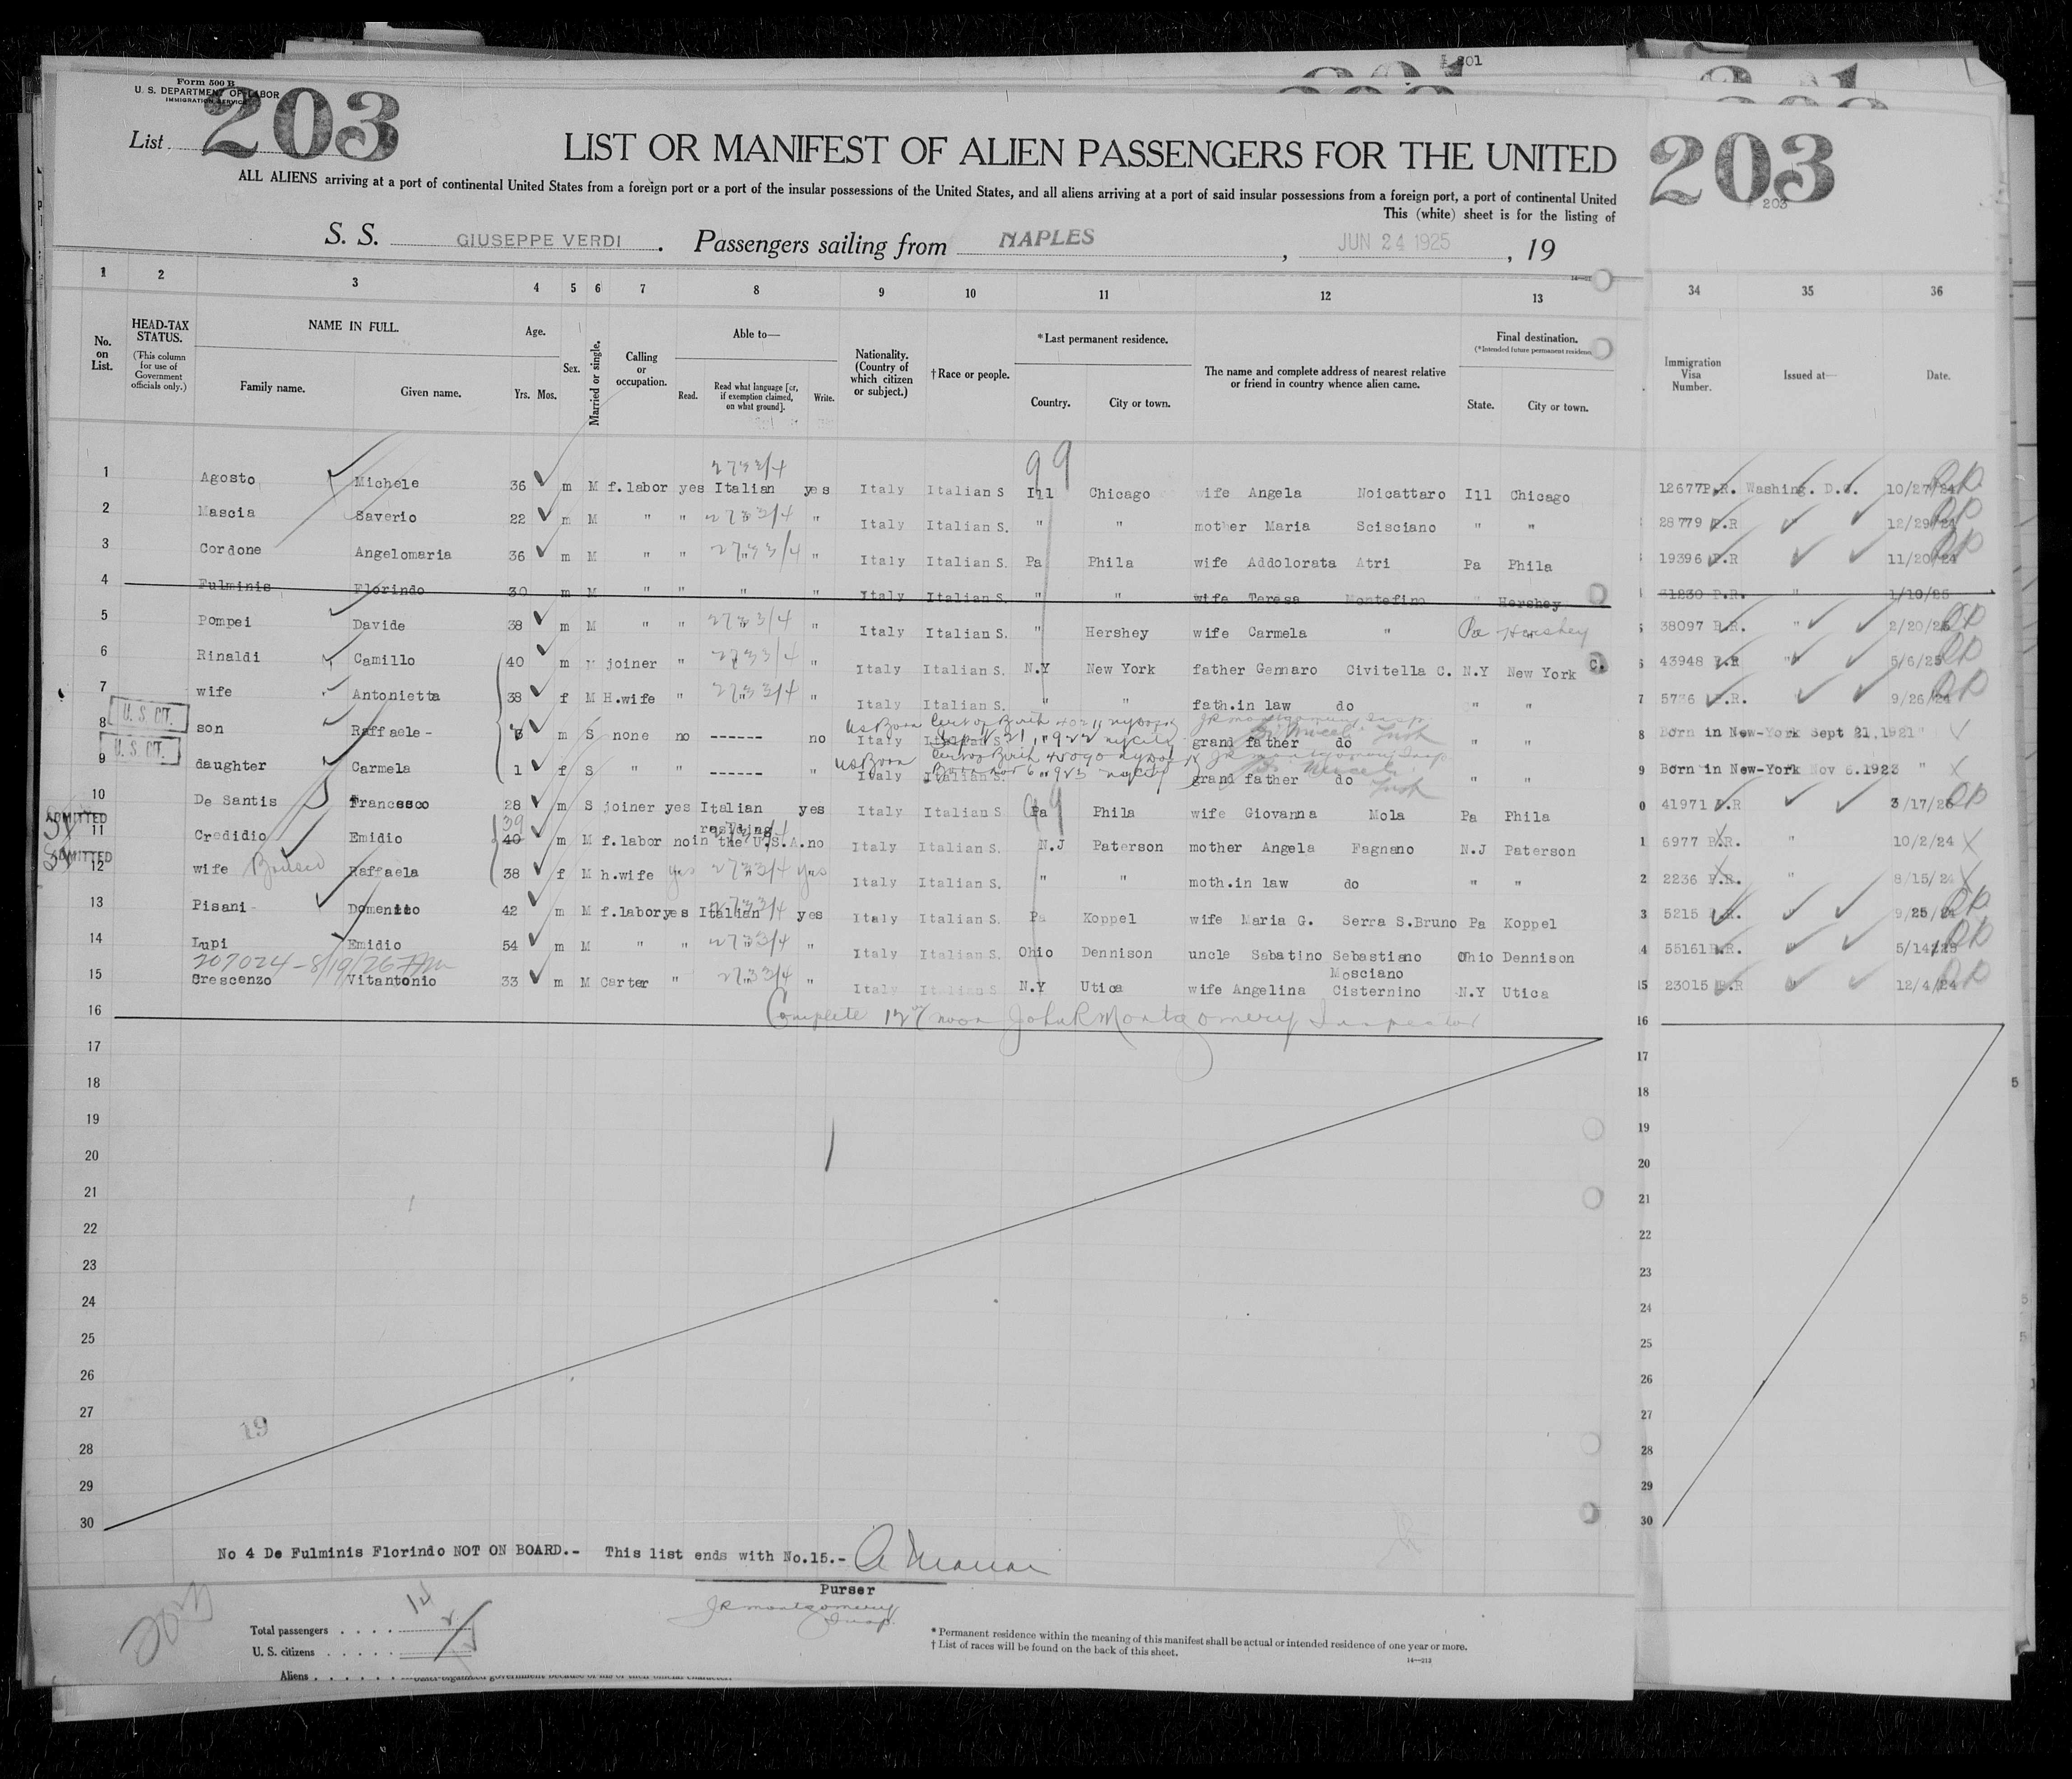 201
Form 500 B
U. S. DEPARTMENT OF LABOR
IMMIGRATION SERVICE
List 203
LIST OR MANIFEST OF ALIEN PASSENGERS FOR THE UNITED
203
203
ALL ALIENS arriving at a port of continental United States from a foreign port or a port of the insular possessions of the United States, and all aliens arriving at a port of said insular possessions from a foreign port, a port of continental United
This (white) sheet is for the listing of
S. S. GIUSEPPE VERDI. Passengers sailing from NAPLES, JUN 24 1925, 19
1 2 3 4 5 6 7 8 9 10 11 12 13 34 35 36
No. on List.
HEAD-TAX STATUS.
(This column for use of Government officials only.)
NAME IN FULL.
Family name. Given name.
Age.
Yrs. Mos.
Sex.
Married or single.
Calling or occupation.
Able to—
Read. Read what language [or, if exemption claimed, on what ground]. Write.
Nationality. (Country of which citizen or subject.)
†Race or people.
*Last permanent residence.
Country. City or town.
The name and complete address of nearest relative or friend in country whence alien came.
Final destination.
(*Intended future permanent residence
State. City or town.
Immigration Visa Number.
Issued at—
Date.
2733/4 99
1 Agosto Michele 36 m M f.labor yes Italian yes Italy Italian S Ill Chicago wife Angela Noicattaro Ill Chicago 12677P.R. Washing. D.C. 10/27/24
2 Mascia Saverio 22 m M " " 2733/4 " Italy Italian S. " " mother Maria Scisciano " " 28779 P.R " 12/29/24
3 Cordone Angelomaria 36 m M " " 2733/4 " Italy Italian S. Pa Phila wife Addolorata Atri Pa Phila 19396 P.R 11/20/24
4 Fulminis Florindo 30 m M " " " " Italy Italian S. " " wife Teresa Montefino " Hershey 31230 P.R. " 1/10/25
5 Pompei Davide 38 m M " " 2733/4 " Italy Italian S. " Hershey wife Carmela " Pa Hershey 38097 P.R. " 2/20/25
6 Rinaldi Camillo 40 m M joiner " 2733/4 " Italy Italian S. N.Y New York father Gennaro Civitella C. N.Y New York C. 43948 P.R " 5/6/25
7 wife Antonietta 38 f M H.wife " 2733/4 " Italy Italian S. " " fath.in law do " " 5736 P.R. 9/26/24
U. S. CIT.
US Born Cert of Birth
8 son Raffaele - m S none no ------ no Italy Italian S. grand father do " " Born in New-York Sept 21,1921 "
U. S. CIT.
US Born Cert of Birth 45090
Born Nov 6 1923 ny City
9 daughter Carmela 1 f S " " ------ " Italy Italian S. grand father do " " Born in New-York Nov 6.1923 "
10 De Santis Francesco 28 m S joiner yes Italian yes Italy Italian S Pa Phila wife Giovanna Mola Pa Phila 41971 P.R 3/17/25
ADMITTED
39 residing
11 Credidio Emidio 40 m M f.labor no in the U.S.A. no Italy Italian S. N.J Paterson mother Angela Fagnano N.J Paterson 6977 P.R. " 10/2/24
ADMITTED
12 wife Raffaela 38 f M h.wife yes 2733/4 yes Italy Italian S. " " moth.in law do " " 2236 P.R. " 8/15/24
13 Pisani Domenico 42 m M f.labor yes Italian yes Italy Italian S. Pa Koppel wife Maria G. Serra S.Bruno Pa Koppel 5215 P.R. 9/25/24
14 Lupi Emidio 54 m M " " 2733/4 " Italy Italian S. Ohio Dennison uncle Sabatino Sebastiano Ohio Dennison 55161 P.R. " 5/14/25
207024-8/19/26 Mosciano
15 Crescenzo Vitantonio 33 m M Carter " 2733/4 " Italy Italian S N.Y Utica wife Angelina Cisternino N.Y Utica 23015 P.R " 12/4/24
16 Complete 12 noon John R Montgomery Inspector 16
17 17
18 18
19 19
20 20
21 21
22 22
23 23
24 24
25 25
26 26
27 27
19
28 28
29 29
30 30
No 4 De Fulminis Florindo NOT ON BOARD.- This list ends with No.15.-
Purser
JR Montgomery
Insp.
203
Total passengers . . . . 14
U. S. citizens . . . . . 2
Aliens . . . . . .
* Permanent residence within the meaning of this manifest shall be actual or intended residence of one year or more.
† List of races will be found on the back of this sheet.
14—213